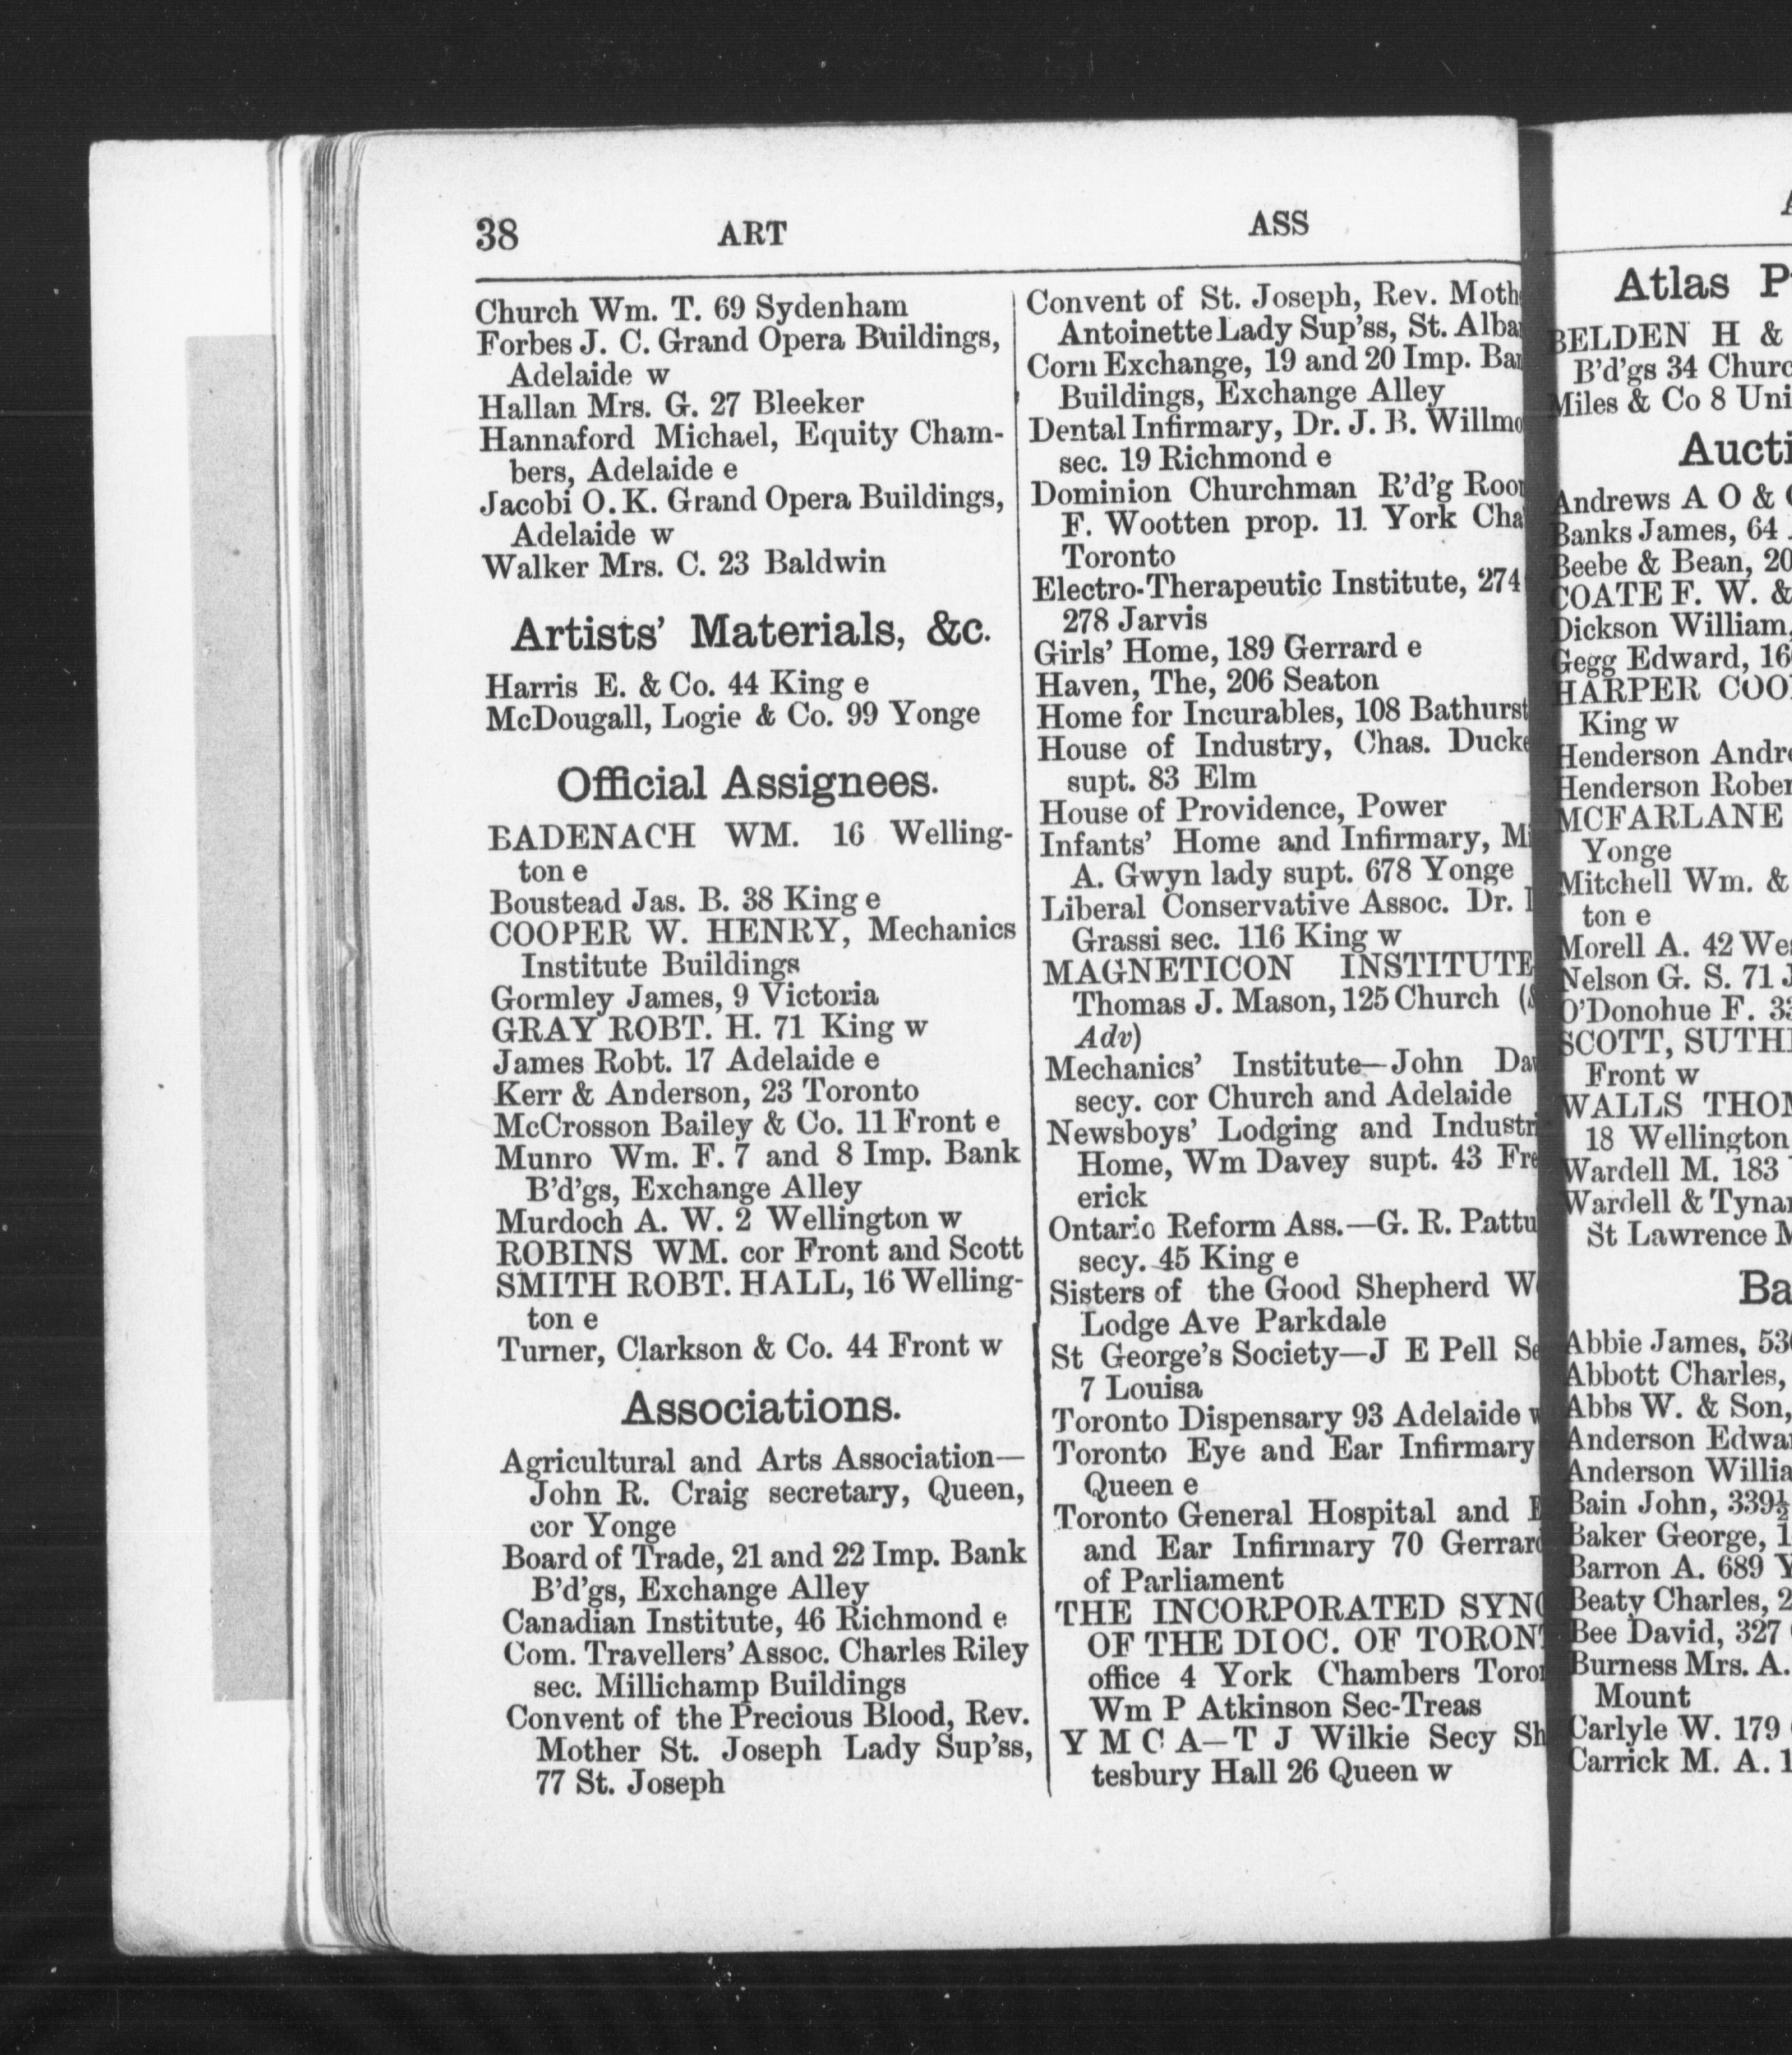 38 ART ASS
Church Wm. T. 69 Sydenham
Forbes J. C. Grand Opera Buildings,
Adelaide w
Hallan Mrs. G. 27 Bleeker
Hannaford Michael, Equity Cham-
bers, Adelaide e
Jacobi O. K. Grand Opera Buildings,
Adelaide w
Walker Mrs. C. 23 Baldwin
Artists' Materials, &c.
Harris E. & Co. 44 King e
McDougall, Logie & Co. 99 Yonge
Official Assignees.
BADENACH WM. 16 Welling-
ton e
Boustead Jas. B. 38 King e
COOPER W. HENRY, Mechanics
Institute Buildings
Gormley James, 9 Victoria
GRAY ROBT. H. 71 King w
James Robt. 17 Adelaide e
Kerr & Anderson, 23 Toronto
McCrosson Bailey & Co. 11 Front e
Munro Wm. F. 7 and 8 Imp. Bank
B'd'gs, Exchange Alley
Murdoch A. W. 2 Wellington w
ROBINS WM. cor Front and Scott
SMITH ROBT. HALL, 16 Welling-
ton e
Turner, Clarkson & Co. 44 Front w
Associations.
Agricultural and Arts Association—
John R. Craig secretary, Queen,
cor Yonge
Board of Trade, 21 and 22 Imp. Bank
B'd'gs, Exchange Alley
Canadian Institute, 46 Richmond e
Com. Travellers' Assoc. Charles Riley
sec. Millichamp Buildings
Convent of the Precious Blood, Rev.
Mother St. Joseph Lady Sup'ss,
77 St. Joseph
Convent of St. Joseph, Rev. Moth
Antoinette Lady Sup'ss, St. Alba
Corn Exchange, 19 and 20 Imp. Ba
Buildings, Exchange Alley
Dental Infirmary, Dr. J. B. Willmo
sec. 19 Richmond e
Dominion Churchman R'd'g Roo
F. Wootten prop. 11 York Cha
Toronto
Electro-Therapeutic Institute, 274
278 Jarvis
Girls' Home, 189 Gerrard e
Haven, The, 206 Seaton
Home for Incurables, 108 Bathurst
House of Industry, Chas. Ducke
supt. 83 Elm
House of Providence, Power
Infants' Home and Infirmary, M
A. Gwyn lady supt. 678 Yonge
Liberal Conservative Assoc. Dr.
Grassi sec. 116 King w
MAGNETICON INSTITUTE
Thomas J. Mason, 125 Church (
Adv)
Mechanics' Institute—John Da
secy. cor Church and Adelaide
Newsboys' Lodging and Industri
Home, Wm Davey supt. 43 Fre
erick
Ontario Reform Ass.—G. R. Pattu
secy. 45 King e
Sisters of the Good Shepherd W
Lodge Ave Parkdale
St George's Society—J E Pell Se
7 Louisa
Toronto Dispensary 93 Adelaide w
Toronto Eye and Ear Infirmary
Queen e
Toronto General Hospital and E
and Ear Infirmary 70 Gerrard
of Parliament
THE INCORPORATED SYNO
OF THE DIOC. OF TORONT
office 4 York Chambers Toron
Wm P Atkinson Sec-Treas
Y M C A—T J Wilkie Secy Sh
tesbury Hall 26 Queen w
Atlas P
BELDEN H &
B'd'gs 34 Churc
Miles & Co 8 Uni
Aucti
Andrews A O &
Banks James, 64
Beebe & Bean, 20
COATE F. W. &
Dickson William,
Gegg Edward, 16
HARPER COO
King w
Henderson Andre
Henderson Rober
MCFARLANE
Yonge
Mitchell Wm. &
ton e
Morell A. 42 We
Nelson G. S. 71 J
O'Donohue F. 33
SCOTT, SUTH
Front w
WALLS THOM
18 Wellington
Wardell M. 183
Wardell & Tynan
St Lawrence M
Ba
Abbie James, 53
Abbott Charles,
Abbs W. & Son,
Anderson Edwa
Anderson Willia
Bain John, 339½
Baker George, 1
Barron A. 689 Y
Beaty Charles, 2
Bee David, 327
Burness Mrs. A.
Mount
Carlyle W. 179
Carrick M. A. 1